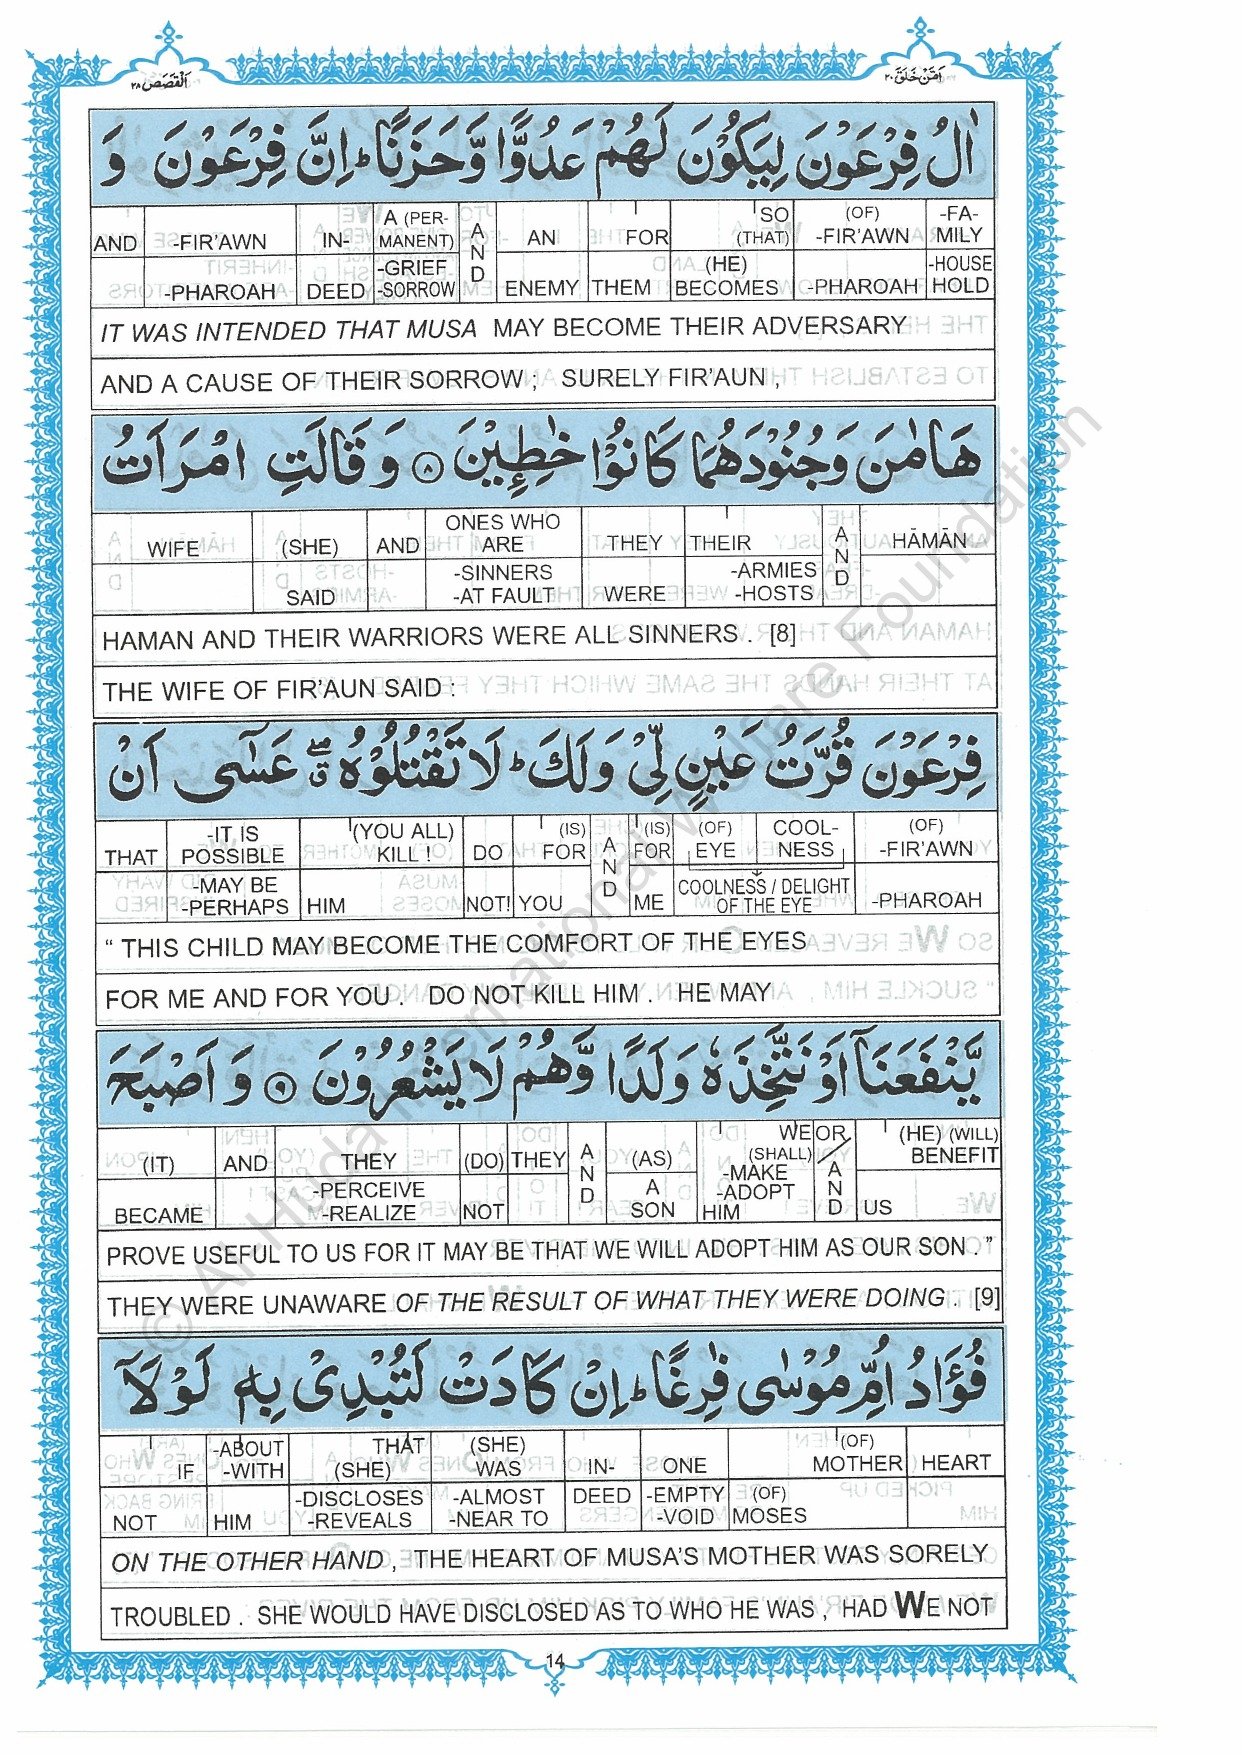 اَلْقَصَص ٢٨
اَمَّنْ خَلَقَ ٢٠
اٰلُ فِرْعَوْنَ لِيَكُوْنَ لَهُمْ عَدُوًّا وَّحَزَنًاؕ اِنَّ فِرْعَوْنَ وَ
AND -FIR'AWN IN- A (PER-MANENT) AND AN FOR SO (THAT) (OF) -FIR'AWN -FA-MILY
-PHAROAH DEED -GRIEF -SORROW ENEMY THEM (HE) BECOMES -PHAROAH -HOUSE HOLD
IT WAS INTENDED THAT MUSA MAY BECOME THEIR ADVERSARY
AND A CAUSE OF THEIR SORROW ; SURELY FIR'AUN ,
هَامٰنَ وَجُنُوْدَهُمَا كَانُوْا خٰطِـِٕيْنَ ۸ وَ قَالَتِ امْرَاَتُ
WIFE (SHE) AND ONES WHO ARE THEY THEIR AND HĀMĀN
SAID -SINNERS -AT FAULT WERE -ARMIES -HOSTS
HAMAN AND THEIR WARRIORS WERE ALL SINNERS . [8]
THE WIFE OF FIR'AUN SAID :
فِرْعَوْنَ قُرَّتُ عَيْنٍ لِّيْ وَلَكَؕ لَا تَقْتُلُوْهُ ۖق عَسٰٓى اَنْ
THAT -IT IS POSSIBLE (YOU ALL) KILL ! DO (IS) FOR AND (IS) FOR (OF) EYE COOL-NESS (OF) -FIR'AWN
-MAY BE -PERHAPS HIM NOT! YOU ME COOLNESS / DELIGHT OF THE EYE -PHAROAH
“ THIS CHILD MAY BECOME THE COMFORT OF THE EYES
FOR ME AND FOR YOU . DO NOT KILL HIM . HE MAY
يَّنْفَعَنَاۤ اَوْ نَتَّخِذَهٗ وَلَدًا وَّهُمْ لَا يَشْعُرُوْنَ ۹ وَ اَصْبَحَ
(IT) AND THEY (DO) THEY AND (AS) WE (SHALL) OR/AND (HE) (WILL) BENEFIT
BECAME -PERCEIVE -REALIZE NOT A SON -MAKE -ADOPT HIM US
PROVE USEFUL TO US FOR IT MAY BE THAT WE WILL ADOPT HIM AS OUR SON . ”
THEY WERE UNAWARE OF THE RESULT OF WHAT THEY WERE DOING . [9]
فُؤَادُ اُمِّ مُوْسٰى فٰرِغًاؕ اِنْ كَادَتْ لَتُبْدِيْ بِهٖ لَوْلَاۤ
IF -ABOUT -WITH THAT (SHE) (SHE) WAS IN- ONE (OF) MOTHER HEART
NOT HIM -DISCLOSES -REVEALS -ALMOST -NEAR TO DEED -EMPTY -VOID (OF) MOSES
ON THE OTHER HAND , THE HEART OF MUSA'S MOTHER WAS SORELY
TROUBLED . SHE WOULD HAVE DISCLOSED AS TO WHO HE WAS , HAD WE NOT
14
© Al-Huda International Welfare Foundation